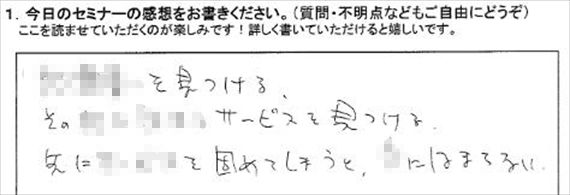 1. 今日のセミナーの感想をお書きください。（質問・不明点などもご自由にどうぞ）
ここを読ませていただくのが楽しみです！詳しく書いていただけると嬉しいです。
を見つける、
その サービスを見つける.
先に を固めてしまうと、 にはまらない.